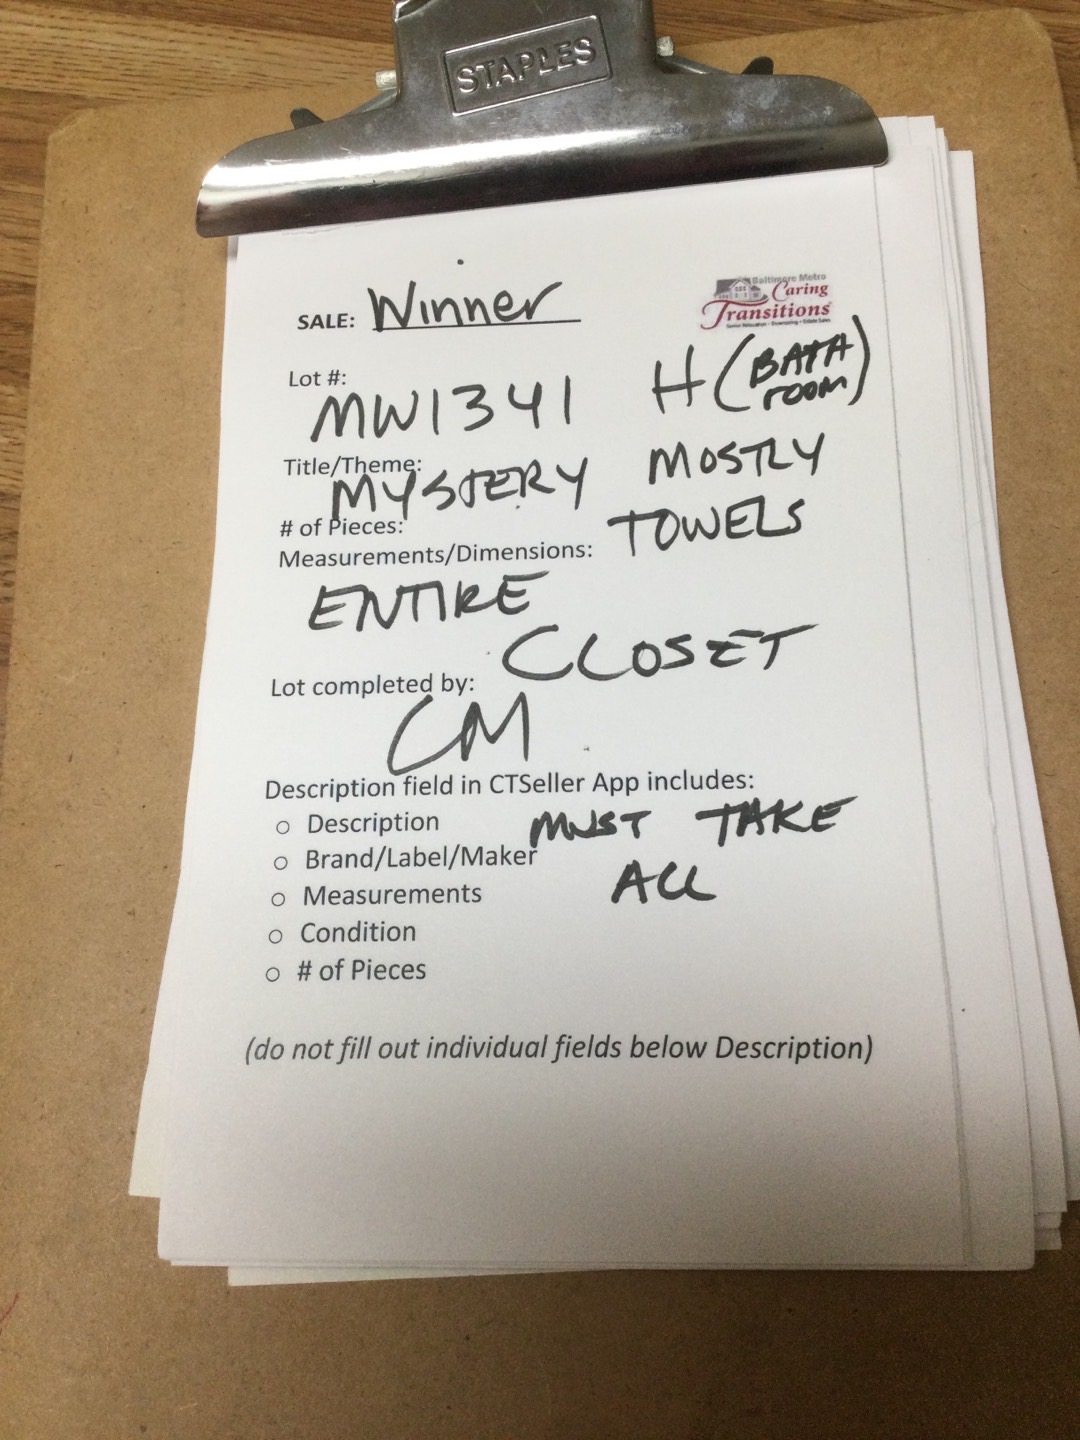 STAPLES
SALE: Winner
Baltimore Metro
Caring
Transitions
Senior Relocation • Downsizing • Estate Sales
Lot #:
MW1341 H (BATH
ROOM)
Title/Theme:
MYSTERY MOSTLY
# of Pieces:
TOWELS
Measurements/Dimensions:
ENTIRE
CLOSET
Lot completed by:
CM
Description field in CTSeller App includes:
○ Description MUST TAKE
○ Brand/Label/Maker
ALL
○ Measurements
○ Condition
○ # of Pieces
(do not fill out individual fields below Description)